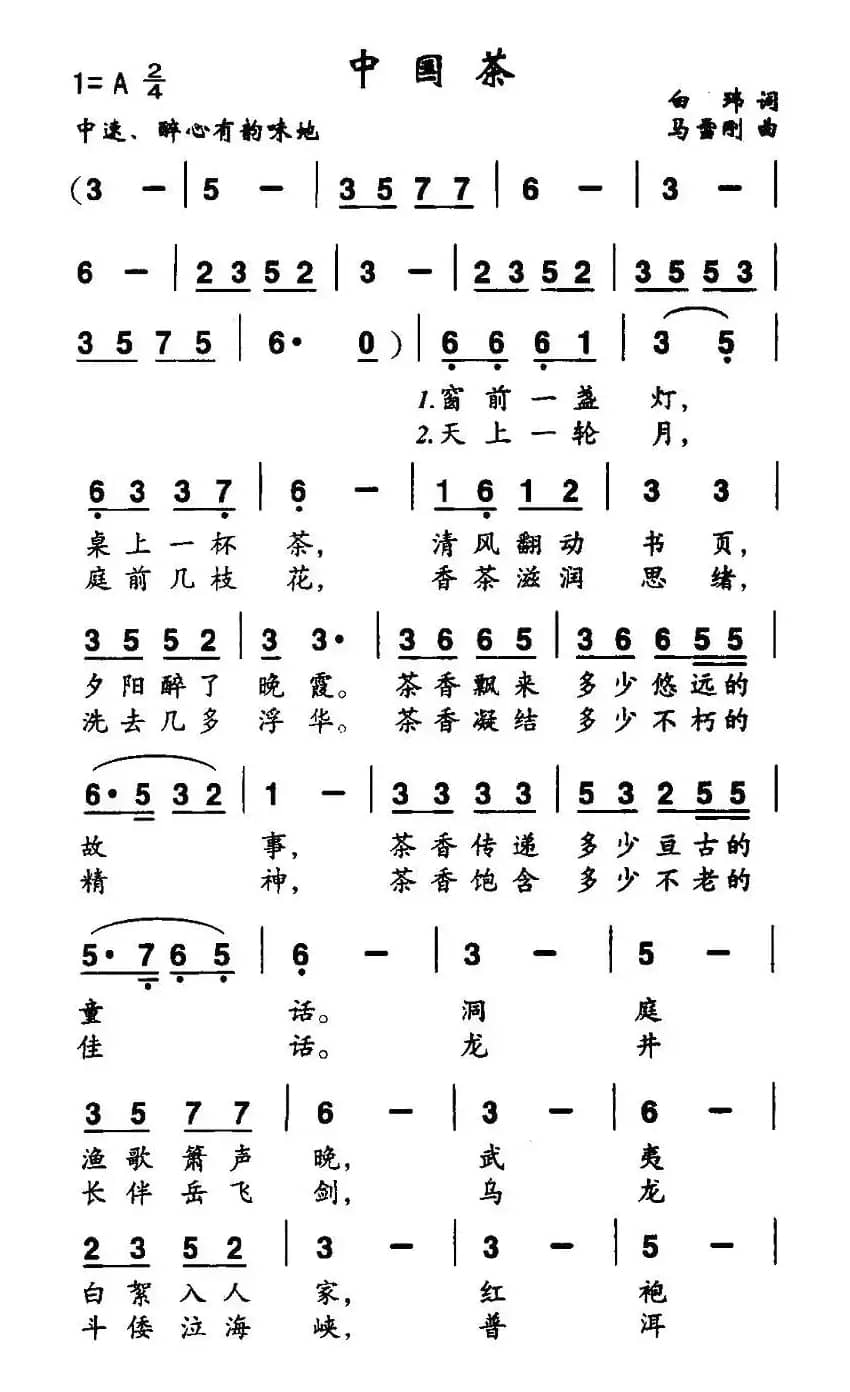 中国茶
1= A 2/4
白 玮 词
中速、醉心有韵味地
马雪刚 曲
(3 – | 5 – | 3 5 7 7 | 6 – | 3 – |
6 – | 2 3 5 2 | 3 – | 2 3 5 2 | 3 5 5 3 |
3 5 7 5 | 6· 0 ) | 6 6 6 1 | 3 5 |
1.窗前一盏 灯,
2.天上一轮 月,
6 3 3 7 | 6 – | 1 6 1 2 | 3 3 |
桌上一杯 茶, 清风翻动 书 页,
庭前几枝 花, 香茶滋润 思 绪,
3 5 5 2 | 3 3· | 3 6 6 5 | 3 6 6 5 5 |
夕阳醉了 晚 霞。 茶香飘来 多少悠远的
洗去几多 浮 华。 茶香凝结 多少不朽的
6· 5 3 2 | 1 – | 3 3 3 3 | 5 3 2 5 5 |
故 事, 茶香传递 多少亘古的
精 神, 茶香饱含 多少不老的
5· 7 6 5 | 6 – | 3 – | 5 – |
童 话。 洞 庭
佳 话。 龙 井
3 5 7 7 | 6 – | 3 – | 6 – |
渔歌箫声 晚, 武 夷
长伴岳飞 剑, 乌 龙
2 3 5 2 | 3 – | 3 – | 5 – |
白絮入人 家, 红 袍
斗倭泣海 峡, 普 洱